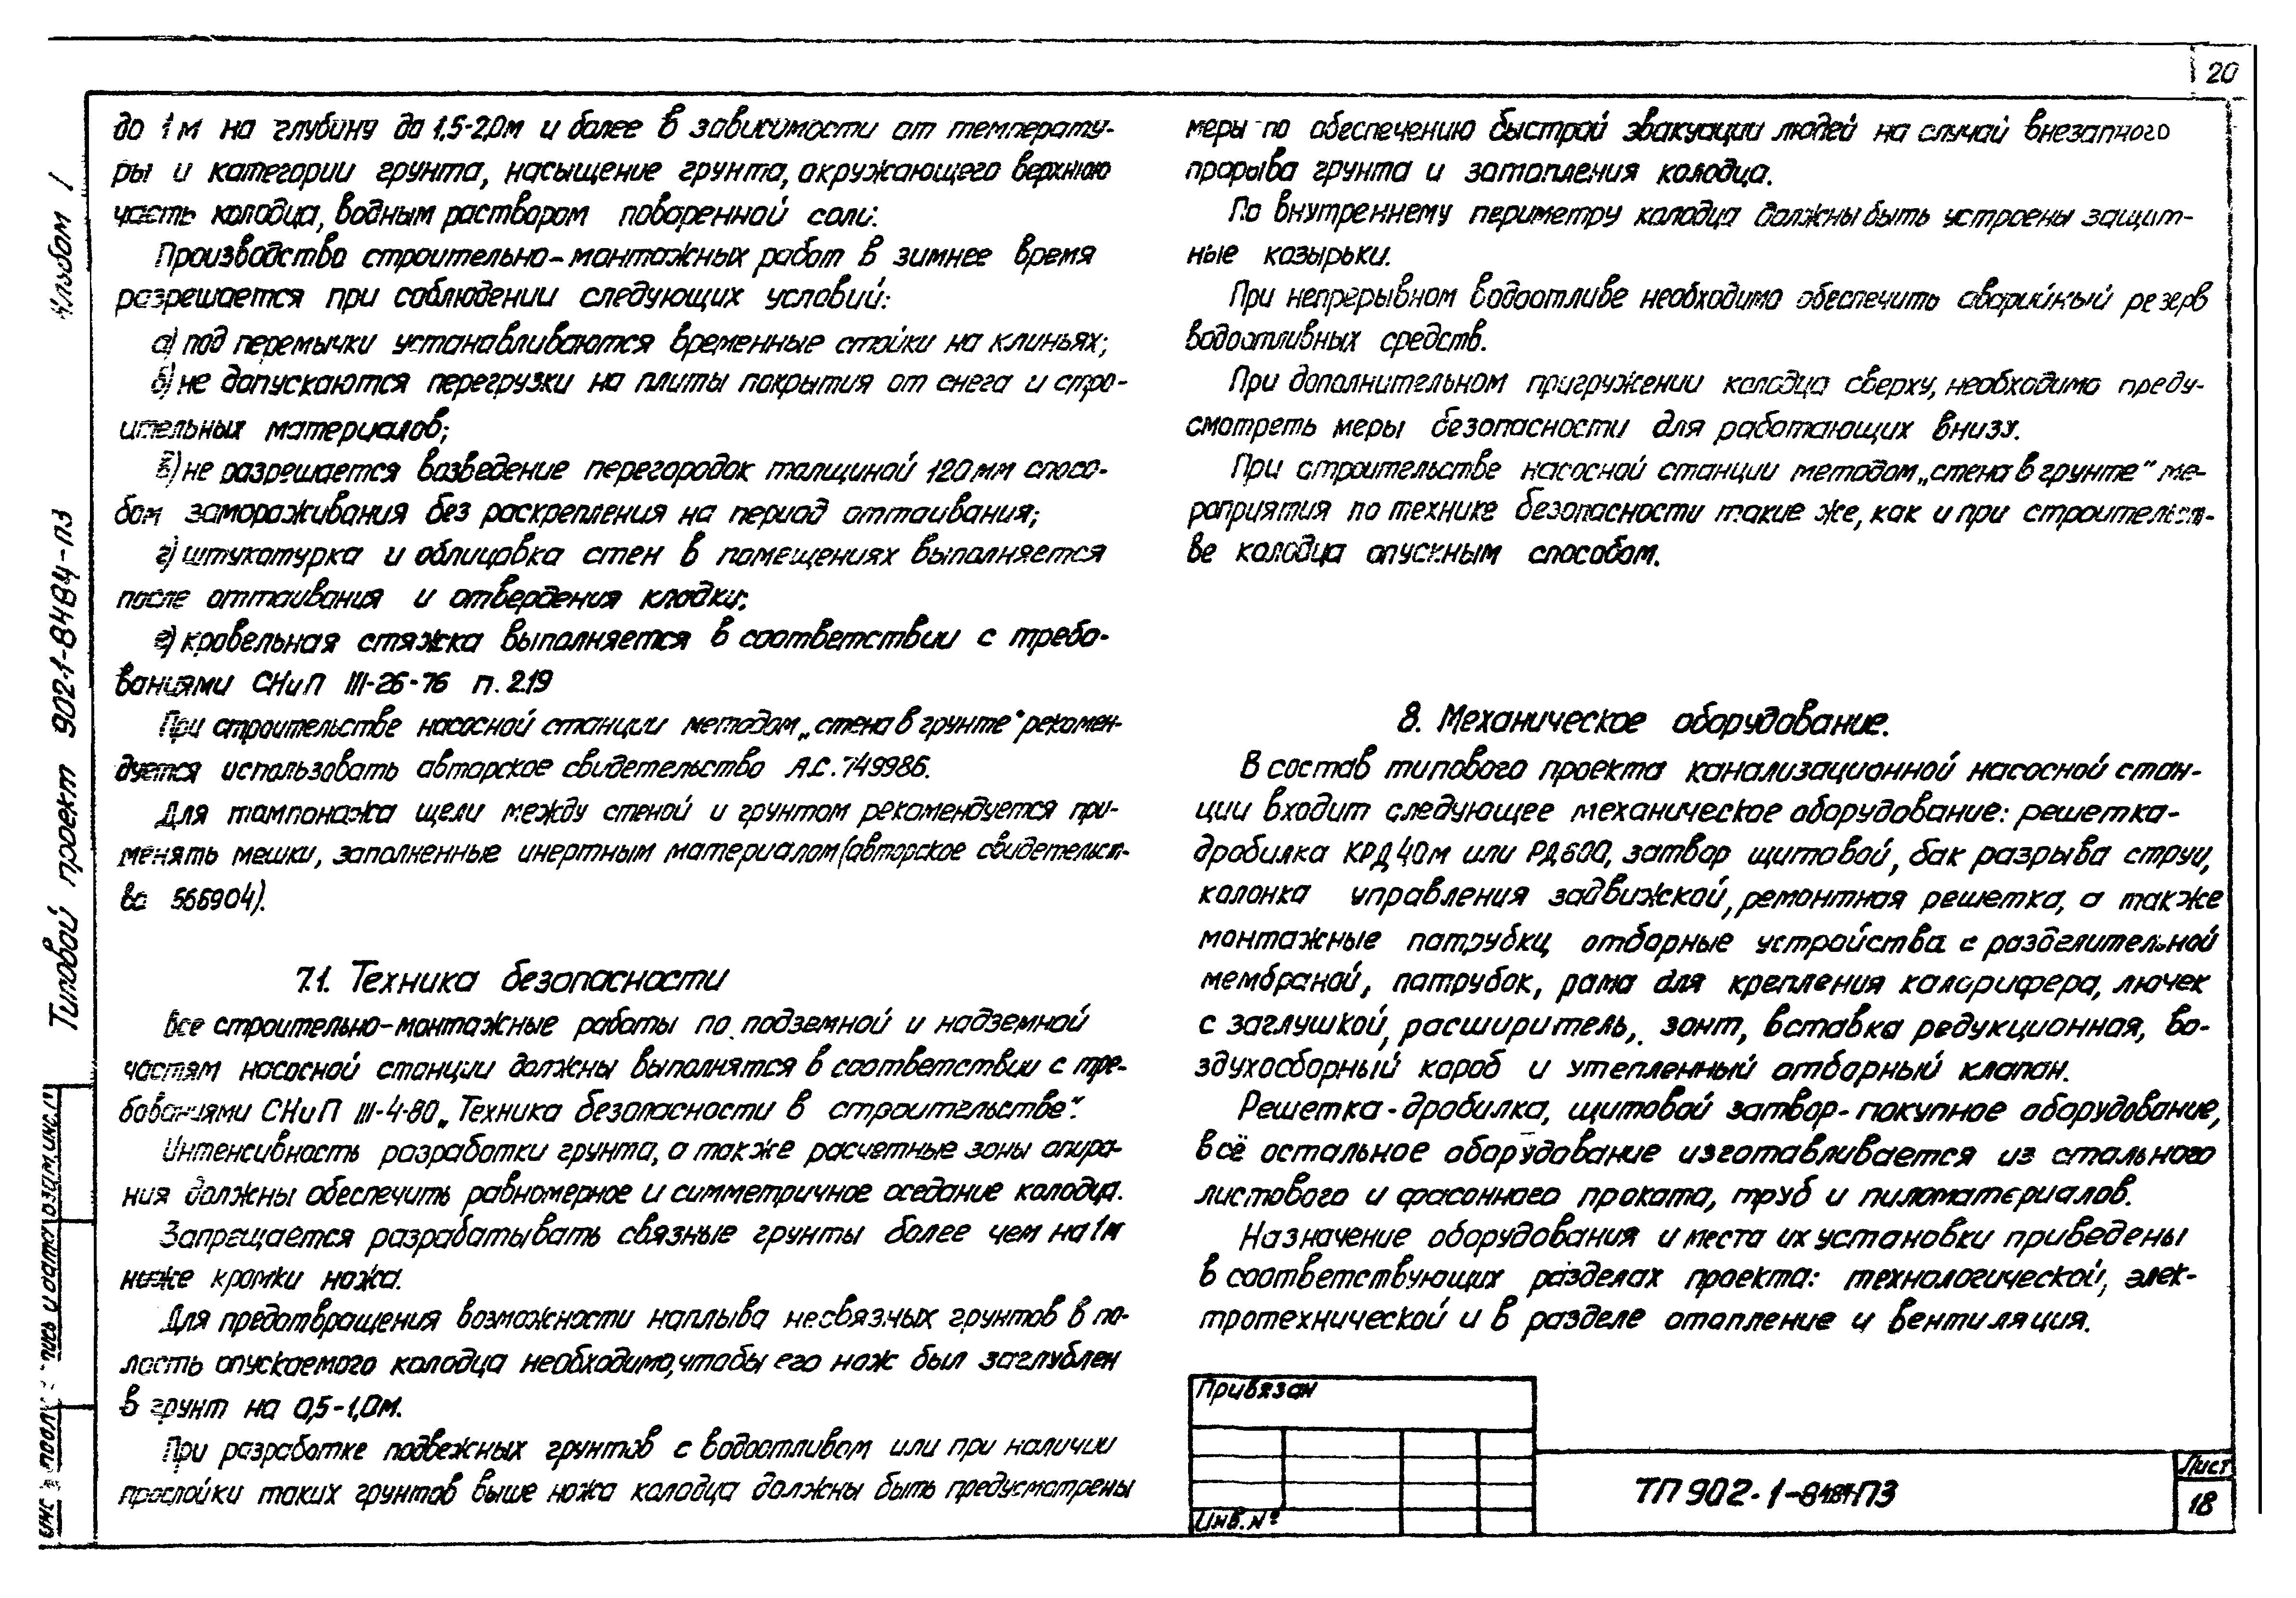 20
до 1м на глубину до 1,5-2,0м и более в зависимости от температу-
ры и категории грунта, насыщение грунта, окружающего верхнюю
часть колодца, водным раствором поваренной соли.
Производство строительно-монтажных работ в зимнее время
разрешается при соблюдении следующих условий:
а) под перемычки устанавливаются временные стойки на клиньях;
б) не допускаются перегрузки на плиты покрытия от снега и стро-
ительных материалов;
в) не разрешается возведение перегородок толщиной 120мм спосо-
бом замораживания без раскрепления на период оттаивания;
г) штукатурка и облицовка стен в помещениях выполняется
после оттаивания и отвердения кладки;
е) кровельная стяжка выполняется в соответствии с требо-
ваниями СНиП III-26-76 п. 2.19
При строительстве насосной станции методом „стена в грунте" рекомен-
дуется использовать авторское свидетельство А.С. 749986.
Для тампонажа щели между стеной и грунтом рекомендуется при-
менять мешки, заполненные инертным материалом (авторское свидетельст-
во 566904).
7.1. Техника безопасности
Все строительно-монтажные работы по подземной и надземной
частям насосной станции должны выполнятся в соответствии с тре-
бованиями СНиП III-4-80 „Техника безопасности в строительстве".
Интенсивность разработки грунта, а также расчетные зоны опира-
ния должны обеспечить равномерное и симметричное оседание колодца.
Запрещается разрабатывать связные грунты более чем на 1м
ниже кромки ножа.
Для предотвращения возможности наплыва несвязных грунтов в по-
лость опускаемого колодца необходимо, чтобы его нож был заглублен
в грунт на 0,5-1,0м.
При разработке подвежных грунтов с водоотливом или при наличии
прослойки таких грунтов выше ножа колодца должны быть предусмотрены
меры по обеспечению быстрой эвакуации людей на случай внезапного
прорыва грунта и затопления колодца.
По внутреннему периметру колодца должны быть устроены защит-
ные козырьки.
При непрерывном водоотливе необходимо обеспечить аварийный резерв
водоотливных средств.
При дополнительном пригружении колодца сверху, необходимо преду-
смотреть меры безопасности для работающих внизу.
При строительстве насосной станции методом „стена в грунте" ме-
роприятия по технике безопасности такие же, как и при строительст-
ве колодца опускным способом.
8. Механическое оборудование.
В состав типового проекта канализационной насосной стан-
ции входит следующее механическое оборудование: решетка-
дробилка КРД 40м или РД 600, затвор щитовой, бак разрыва струи,
колонка управления задвижкой, ремонтная решетка, а также
монтажные патрубки, отборные устройства с разделительной
мембраной, патрубок, рама для крепления калорифера, лючек
с заглушкой, расширитель, зонт, вставка редукционная, во-
здухосборный короб и утепленный отборный клапан.
Решетка-дробилка, щитовой затвор-покупное оборудование,
всё остальное оборудование изготавливается из стального
листового и фасонного проката, труб и пиломатериалов.
Назначение оборудования и места их установки приведены
в соответствующих разделах проекта: технологической, элек-
тротехнической и в разделе отопление и вентиляция.
Привязан
Инв.№
ТП 902-1-84.84-ПЗ
Лист
18
Альбом 1
Типовой проект 902-1-84.84-ПЗ